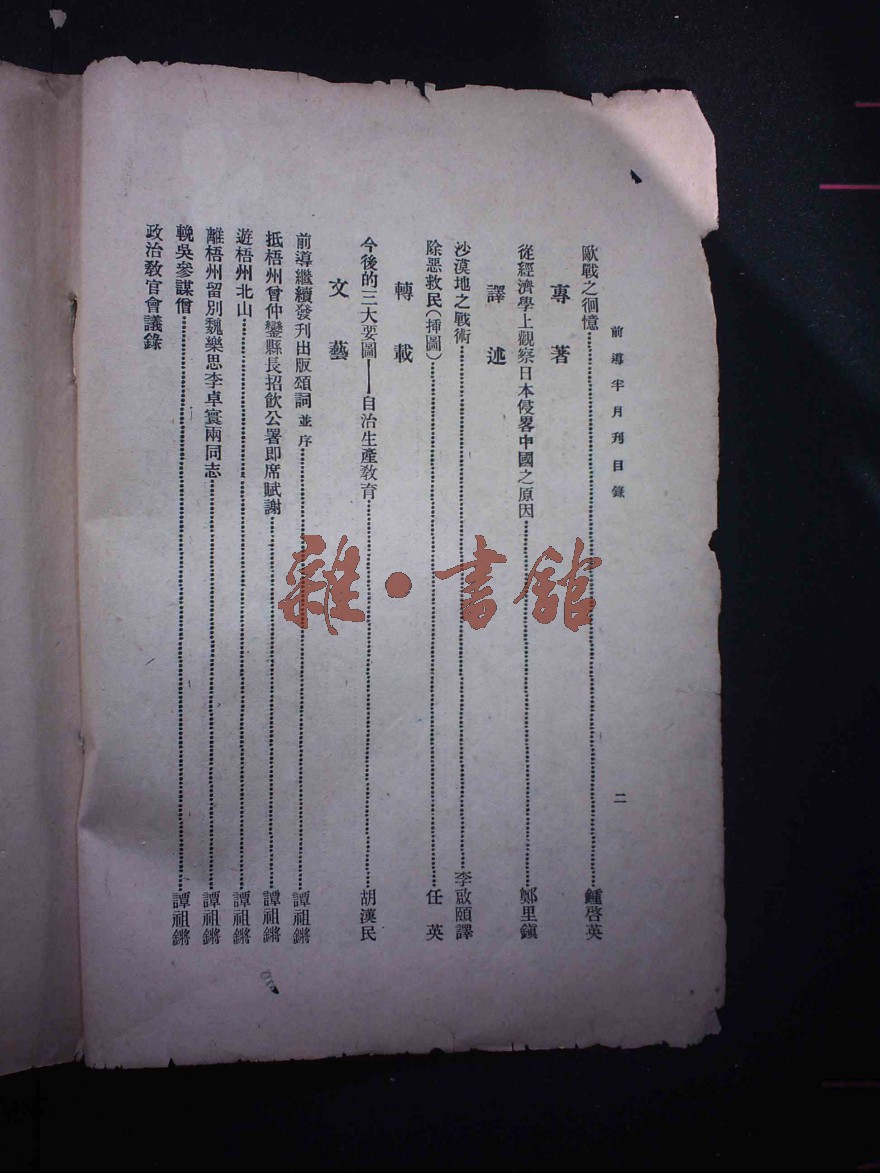 前導半月刊目錄 二
歐戰之徊憶……鍾啓英
專著
從經濟學上觀察日本侵畧中國之原因……鄭里鎮
譯述
沙漠地之戰術……李啟頤譯
除惡救民（揷圖）……任英
轉載
今後的三大要圖——自治生產敎育……胡漢民
文藝
前導繼續發刊出版頌詞並序……譚祖鏘
抵梧州曾仲鑾縣長招飲公署卽席賦謝……譚祖鏘
遊梧州北山……譚祖鏘
離梧州留別魏樂思李卓寰兩同志……譚祖鏘
輓吳參謀僧……譚祖鏘
政治敎官會議錄
雜·書館